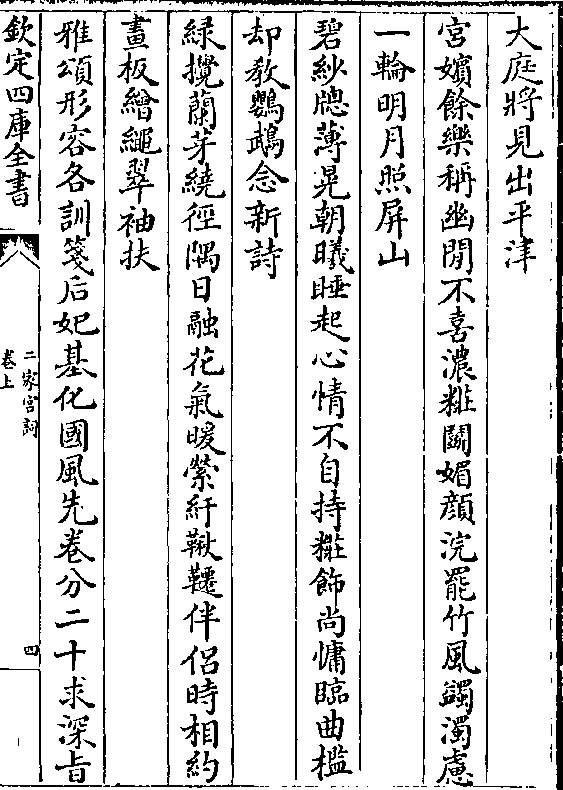 大庭將見出平津
宫嬪餘樂稱幽閒不喜濃粧鬬媚顔浣罷竹風蠲濁慮
一輪明月照屏山
碧紗牎薄晃朝曦睡起心情不自持粧飾尚慵臨曲檻
却教鸚鵡念新詩
緑攪蘭芽繞徑隅日融花氣暖縈紆鞦韆伴侣時相約
畫板繪繩翠袖扶
雅頌形容各訓箋后妃基化國風先卷分二十求深㫖
欽定四庫全書
二家宫詞
卷上
四